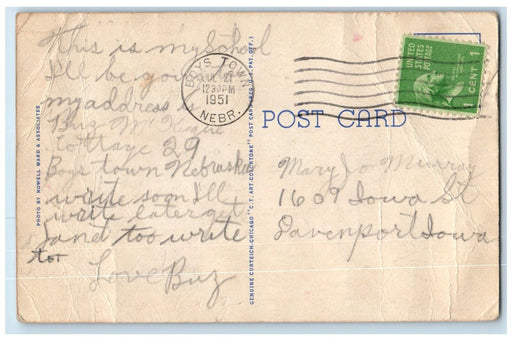 This is my School
I'll be
my address is
Buz
Cottage 29
Boys town Nebraska
write soon I'll
write later get
Janet too write
too
Love Buz
PHOTO BY NOWELL WARD & ASSOCIATES
GENUINE CURTEICH-CHICAGO "C.T. ART-COLORTONE" POST CARD (REG. U.S. PAT. OFF.)
BOYS TOWN
12 30 PM
1951
NEBR.
UNITED
STATES
POSTAGE
1 CENT 1
POST CARD
Mary Jo Murray
1609 Iowa St
Davenport Iowa